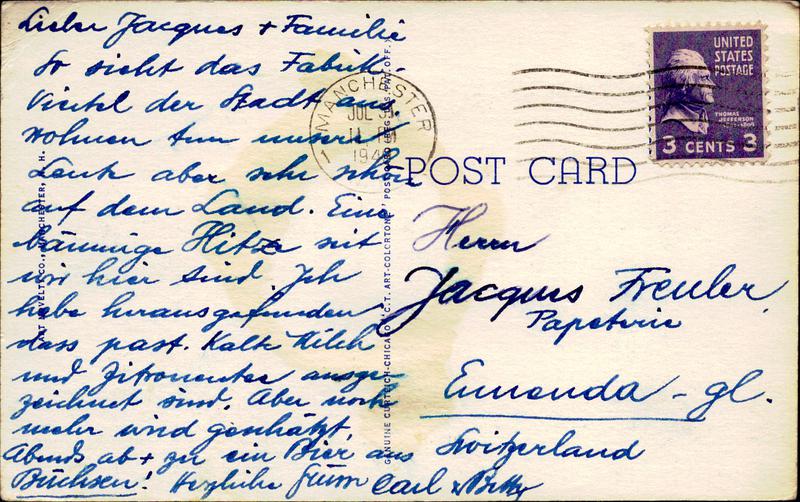 Lieber Jacques + Familie
So sieht das Fabrik-
Viertel der Stadt aus
wohnen tun unsere
Leute aber sehr schön
auf dem Land. Eine
Hitze seit
wir hier sind. Ich
habe herausgefunden
dass past. Kalte Milch
und Zitronentee ausge-
zeichnet sind. Aber noch
mehr wird geschätzt,
Abends ab + zu ein Bier aus
Büchsen! Herzliche Carl + Betty
MANCHESTER
JUL
1
UNITED
STATES
POSTAGE
THOMAS
JEFFERSON
3 CENTS 3
POST CARD
Herrn
Jacques Freuler
Papeterie
Ennenda - gl.
Switzerland
NOVELTY CO., MANCHESTER, N. H.
GENUINE CURTEICH-CHICAGO "C.T. ART-COLORTONE" POST CARD (REG. U.S. PAT. OFF.)